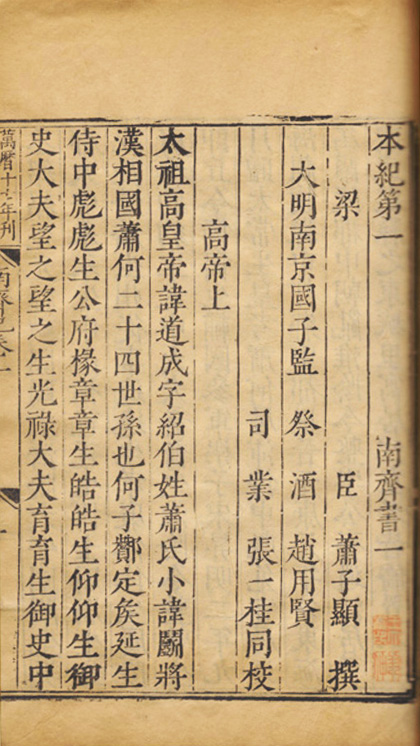 本紀第一 南齊書一
梁 臣 蕭子顯 撰
大明南京國子監 祭 酒 趙用賢
司 業 張一桂同校
高帝上
太祖高皇帝諱道成字紹伯姓蕭氏小諱鬭將
漢相國蕭何二十四世孫也何子酇定侯延生
侍中彪彪生公府椽章章生皓皓生仰仰生御
史大夫望之望之生光祿大夫育育生御史中
萬曆十年刊
南齊卷一